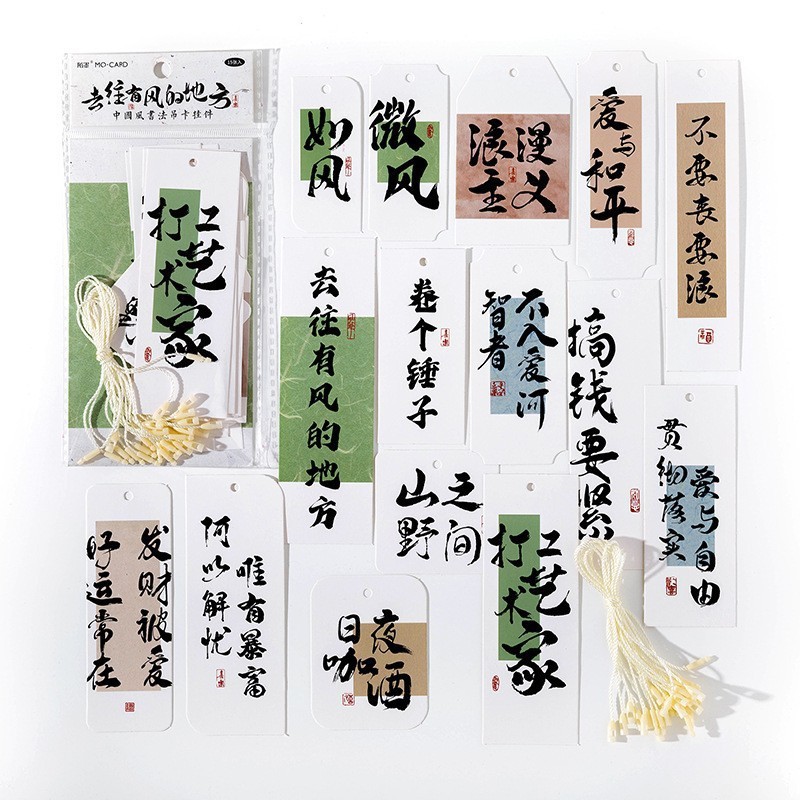 MO·CARD
15张入
去往有风的地方
中國風書法吊卡挂件
打工艺术家
如风
微风
浪漫
主义
爱与和平
不要丧要浪
去往有风的地方
卷个锤子
智者
不入爱河
搞钱要紧
贯彻落实
爱与自由
发财被爱
好运常在
何以解忧
唯有暴富
山野
之间
日咖
夜酒
打工艺术家